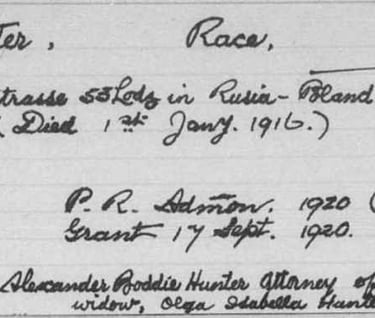 ter, Race,
trasse 53 Lodz in Rusia - Poland
(Died 1st Jany. 1916.)
P. R. Admon. 1920 (
Grant 17 Sept. 1920.
Alexander Boddie Hunter Attorney of
widow, Olga Isabella Hunte